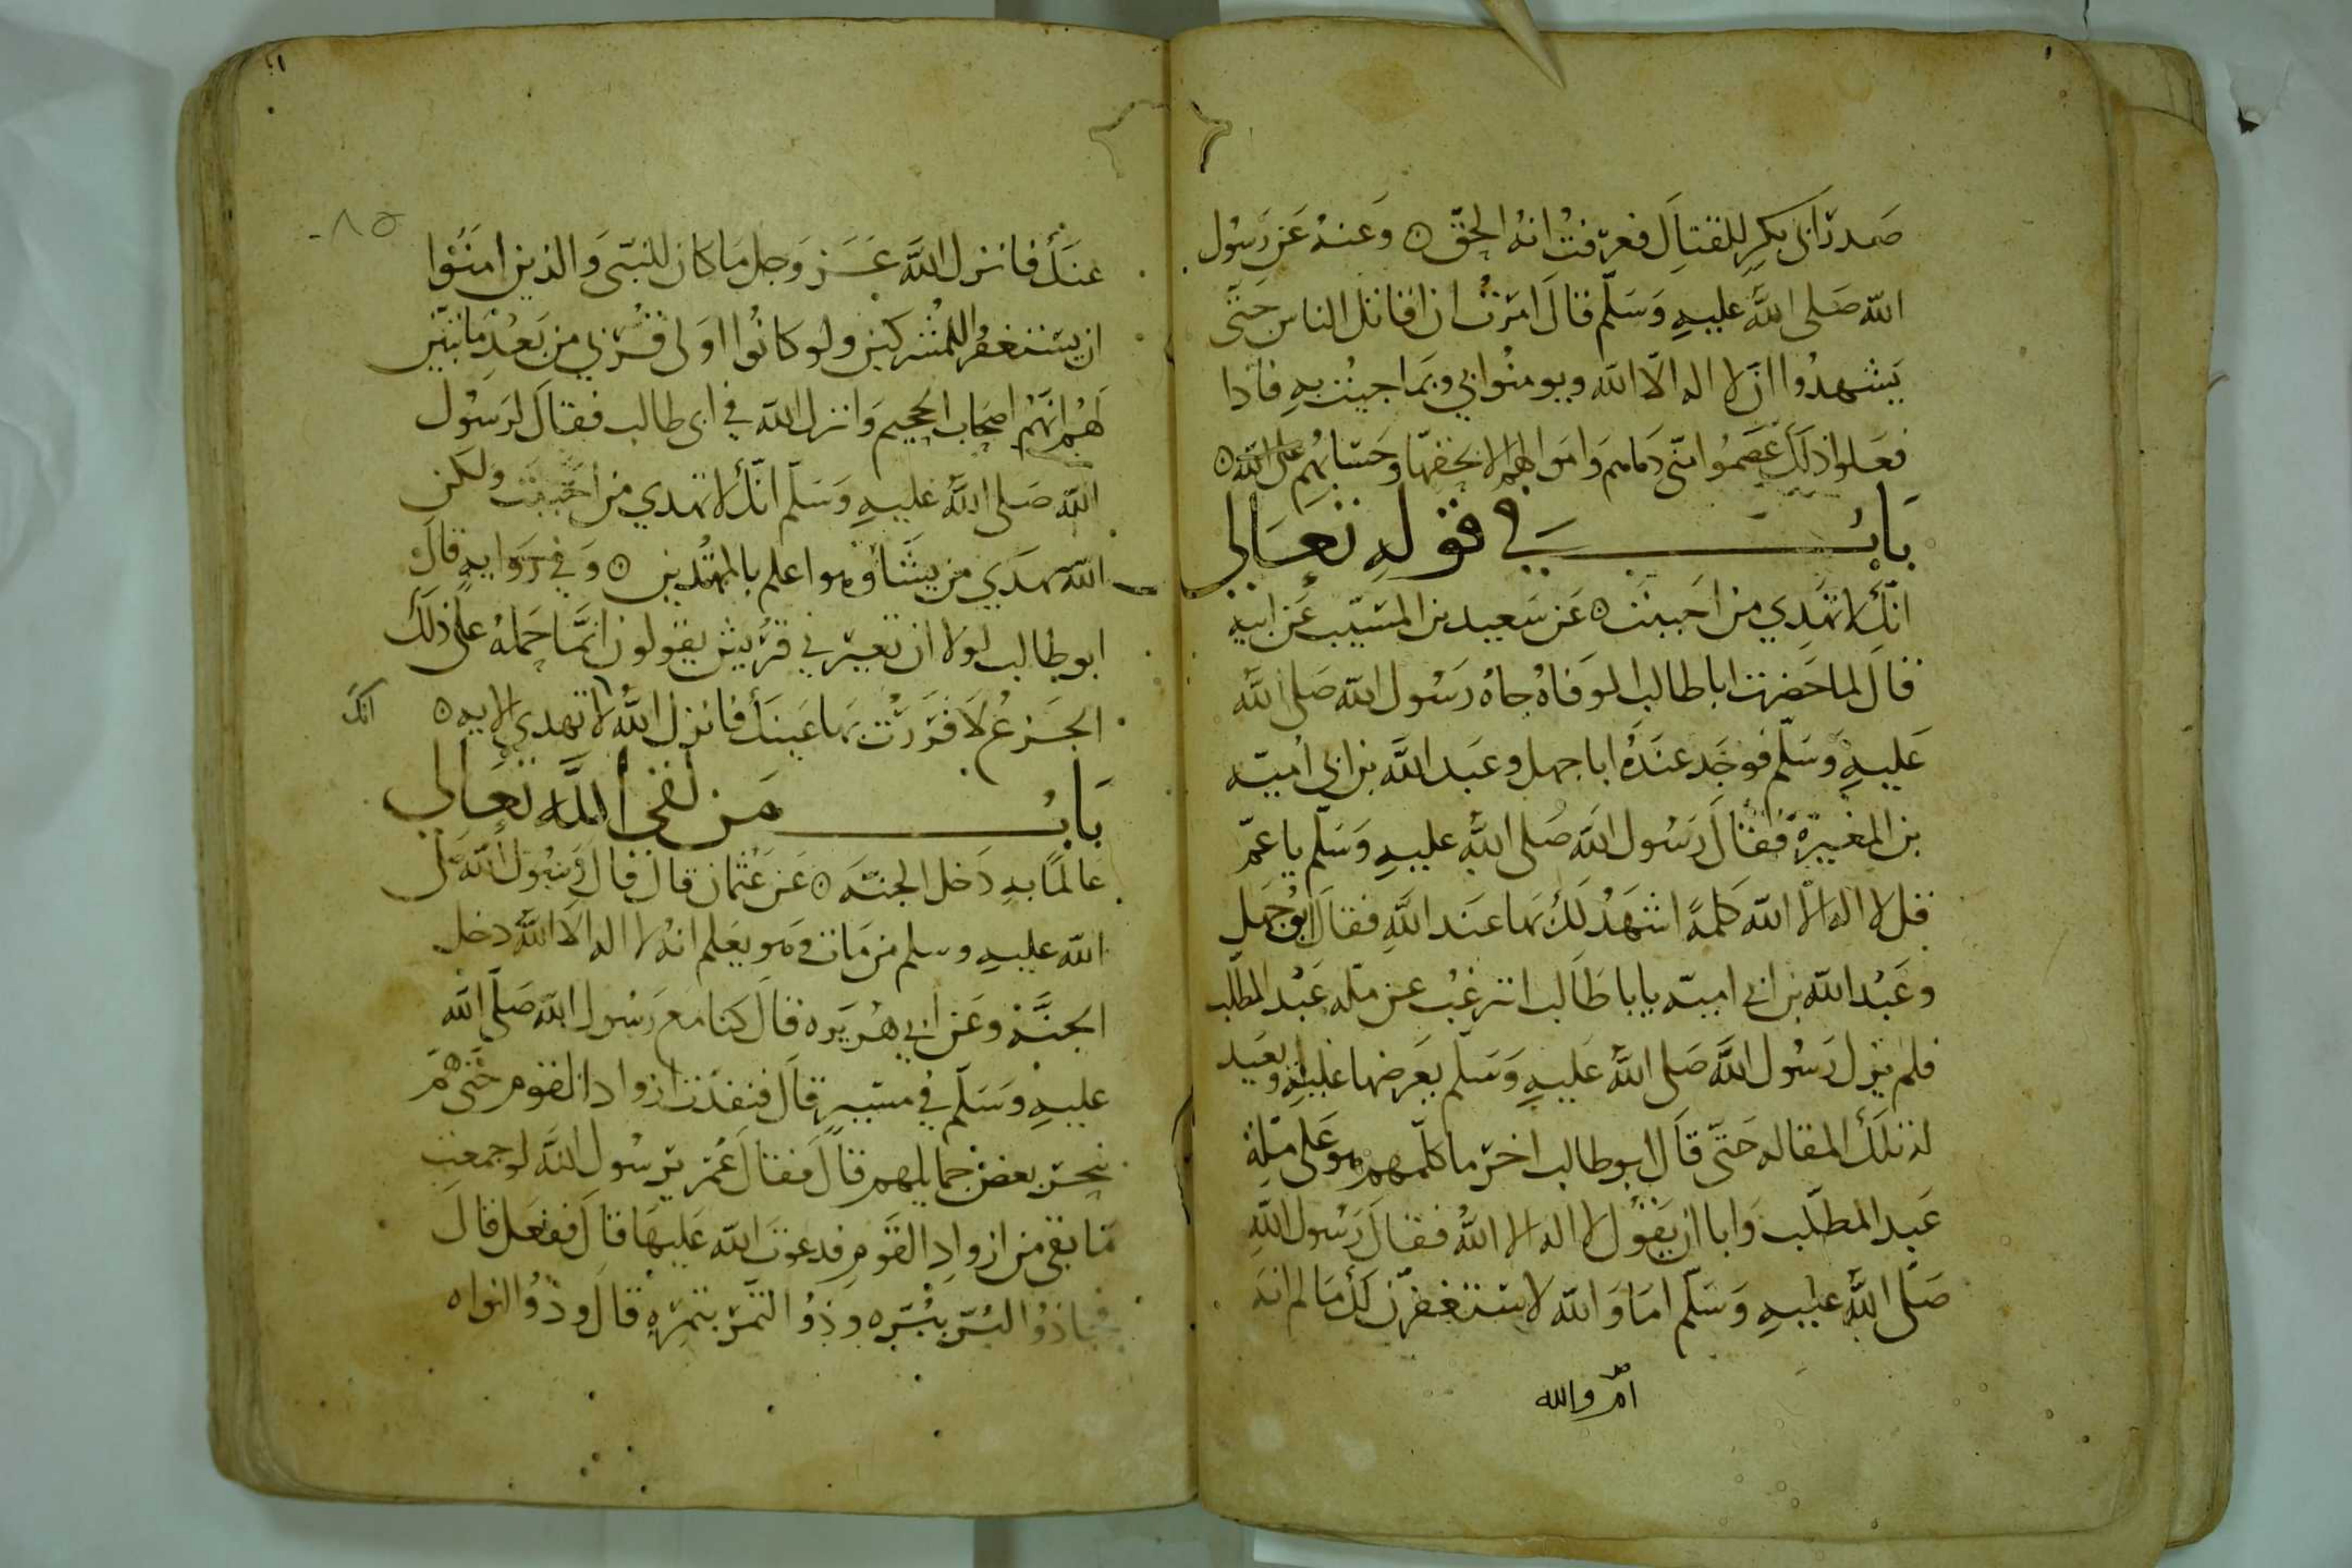 صدر ابى بكرٍ للقتالِ فعرفتُ انهُ الحقّ ۞ وَعنهُ عَن رَسُول
اللّه صَلى اللهُ عليهِ وَسَلّم قالَ امرتُ ان اقاتل الناس حَتّى
يَشهدُوا ان لا اله الّا الله ويومنُوا بي وبَما جيتُ بهِ فاذا
فعَلوا ذلكَ عَصَمُوا منّى دَماهم وَامَوالهم الا بحَقهّا وحسَابهُم على الله ۞
بَابُ في قولهِ تعَالى
انّكَ لا تهَدِي من احَببتَ ۞ عَن سَعيد بن المسَيّب عَن ابيهِ
قالَ لما حَضرت ابا طالب الوَفاهُ جاهُ رَسُول الله صَلى اللهُ
عَليهِ وَسَلّم فوجَد عندَهُ ابا جهل وعَبد اللَّه بن ابى أميّه
بن المغيرَة فقالَ رَسُول الله صَلى اللهُ عليهِ وَسَلّم يا عمّ
قل لا اله الا الله كلمةً اشهَدُ لكَ بها عنَد اللَّهِ فقالَ ابُو جَهلٍ
وعَبْد اللّه بن ابى اميّه يابا طَالب اترغبُ عن ملّه عَبْد المطّلب
فلم يزل رَسُول اللَّه صَلى اللهُ عَليهِ وَسَلّم يعَرضها عَليهِ ويعَيد
لهُ تلكَ المقاله حَتّى قالَ ابو طالب اخرَ ما كلّمهم هو عَلى ملّةِ
عَبد المطّلب وَابا ان يقَوُل لا اله الا اللهُ فقالَ رَسُول اللَّهِ
صَلّى اللهُ عليهِ وَسَلّم امَا وَالله لاستَغفرنّ لكَ مَا لم انهَ
ام والله
عنكَ فانزل اللَّه عَزّ وَجل مَا كان للنّبى وَالذين امَنُوا
ان يستَغفرُوا للمُشركين ولو كانُوا اوَلى قُرْبي من بَعْدِ مَا تبيّن
لهُم انهّمُ اصحَاب الجحيم وَانزل اللّه في ابى طالب فقالَ لرَسُول
اللّه صَلى اللهُ عليهِ وَسَلّم انّكَ لا تهدي من احَببَت ولَكن
اللّه يهَدَي من يشَاُ وَهوا علم بالمهُتدين ۞ وَفي رَوَايهِ قالَ
ابو طالب لولا ان تعيّرني قرُيش يقولون انمَّا حَملهُ علىَ ذلكَ
الجَزعُ لاَقرَرْت بها عَينكَ فانزل اللهُ لا تهدي الايه ۞
انّك
بَابُ مَن لقى اللَّه تعَالى
عَالماً بهِ دَخل الجنّه ۞ عَن عُثمان قالَ قالَ رَسُول اللّه صَلى
اللّه عليهِ وسلم من مَات وَهو يعَلم انهُ لا اله الا اللهُ دخل
الجنَّة وعَن ابي هُريَره قالَ كنا معَ رَسُول اللّه صَلّى الله
عليهِ وَسَلّم في مسَيرٍ قالَ فنفدَت ازواد القوم حَتى همّ
بنحرَ بعضَ حمايلهم قالَ فقالَ عُمر يرسُول اللَّه لو جمعت
مَا بقى من ازوادِ القَومِ فدعوتَ اللّه عَليهَا قالَ ففعَل قالَ
فجا ذُو البُرّ ببُرّه وَذُو التّمرَ بتمرَهِ قالَ وذُو النواه